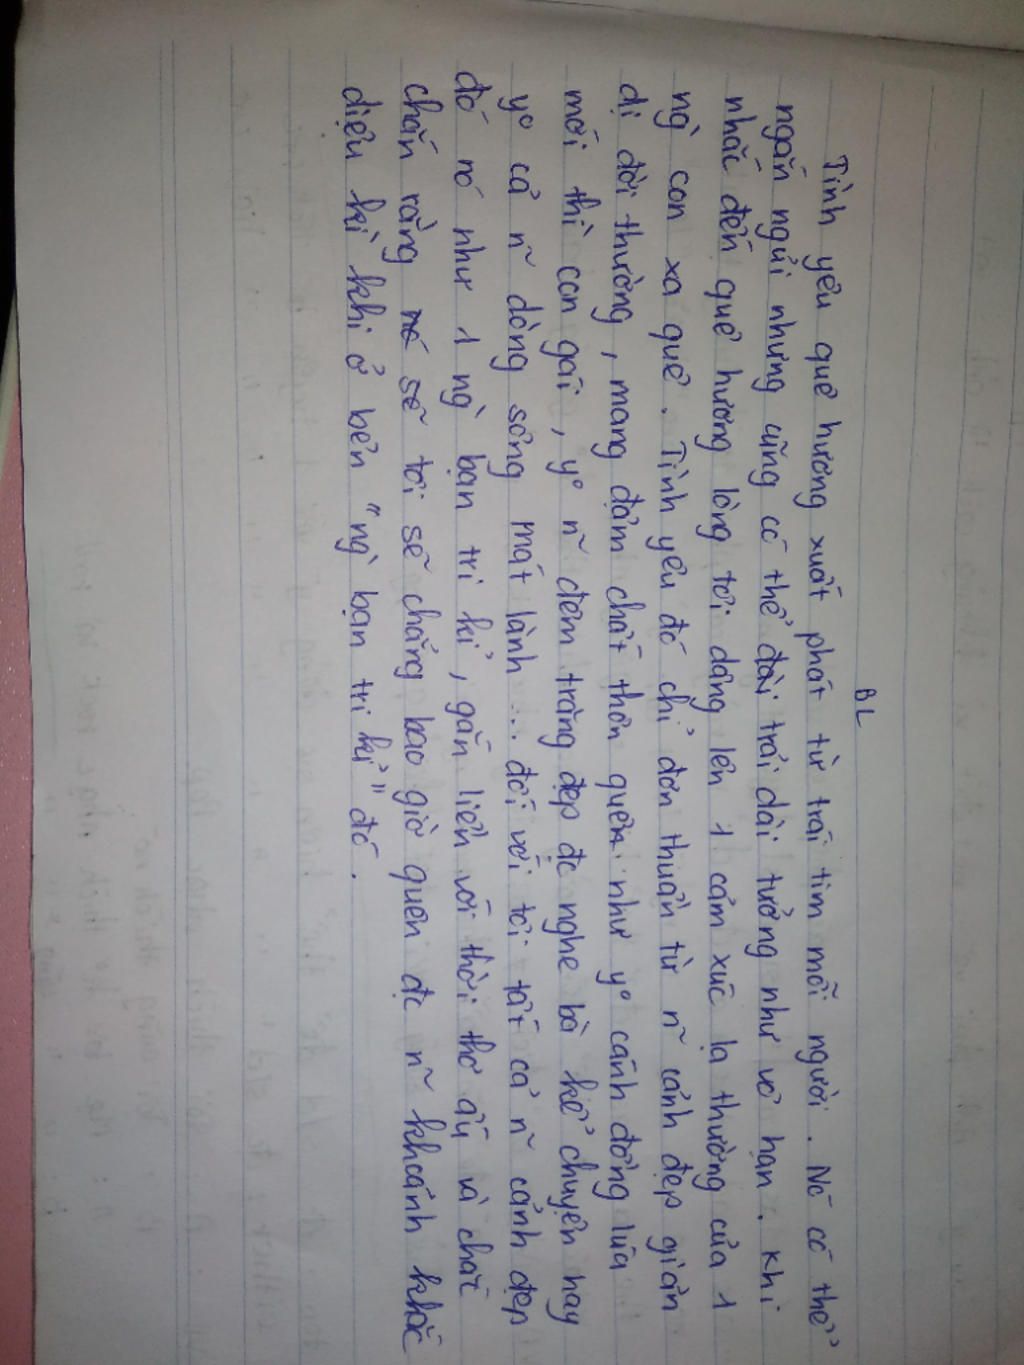 BL
Tình yêu quê hương xuất phát từ trái tim mỗi người. Nó có thể
ngắn ngủi nhưng cũng có thể dài trải dài tưởng như vô hạn. Khi
nhắc đến quê hương lòng tôi dâng lên 1 cảm xúc lạ thường của 1
ng` con xa quê. Tình yêu đó chỉ đơn thuần từ n~ cảnh đẹp giản
dị đời thường, mang đậm chất thôn quê. như y° cánh đồng lúa
mới thì con gái, y° n~ đêm trăng đẹp đc nghe bà kể chuyện hay
y° cả n~ dòng sông mát lành... đối với tôi tất cả n~ cảnh đẹp
đó nó như 1 ng` bạn tri kỉ, gắn liền với thời thơ ấu và chắc
chắn rằng sẽ tôi sẽ chẳng bao giờ quên đc n~ khoảnh khắc
diệu kì khi ở bên "ng` bạn tri kỉ" đó.